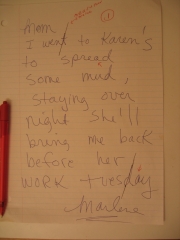 Mom
I went to Karen's
to spread
some mud,
staying over
night she'll
bring me back
before her
work tuesday
Marlene